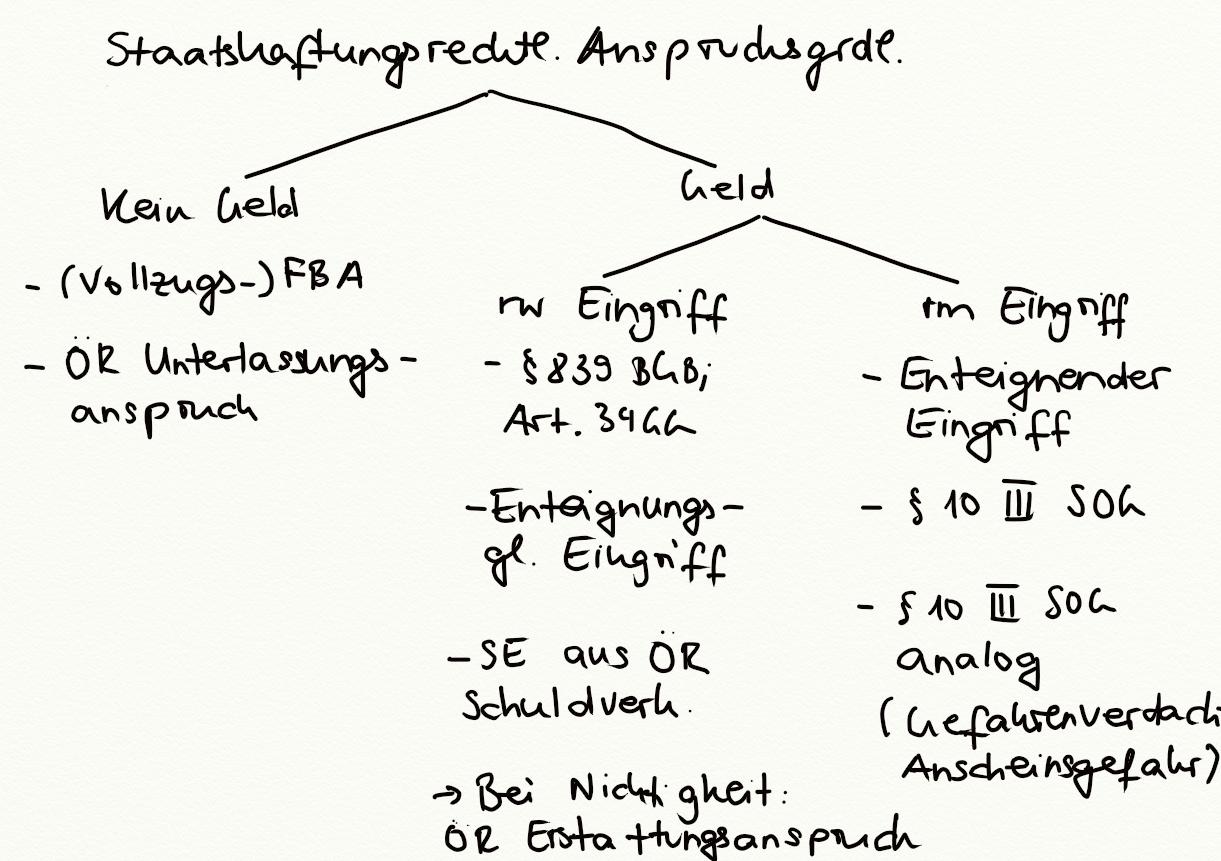 Staatshaftungsrechtl. Anspruchsgrdl.
Kein Geld
- (Vollzugs-) FBA
- ÖR Unterlassungs-
anspruch
Geld
rw Eingriff
- § 839 BGB;
Art. 34 GG
- Enteignungs-
gl. Eingriff
- SE aus ÖR
Schuldverh.
→ Bei Nichtigkeit:
ÖR Erstattungsanspruch
rm Eingriff
- Enteignender
Eingriff
- § 10 III SOG
- § 10 III SOG
analog
(Gefahrenverdacht
Anscheinsgefahr)